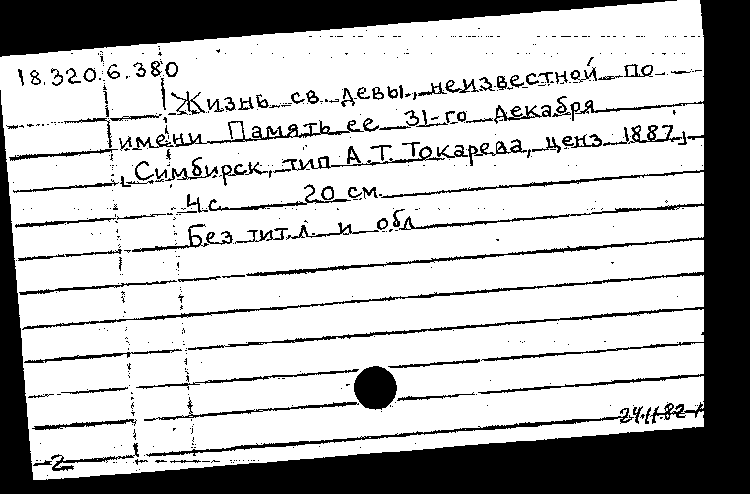 18.320.6.380
Жизнь св. девы, неизвестной по
имени Память ее 31-го декабря
[Симбирск, тип А.Т. Токарева, ценз. 1887]
4 с. 20 см.
Без тит.л. и обл
24.11.82
2